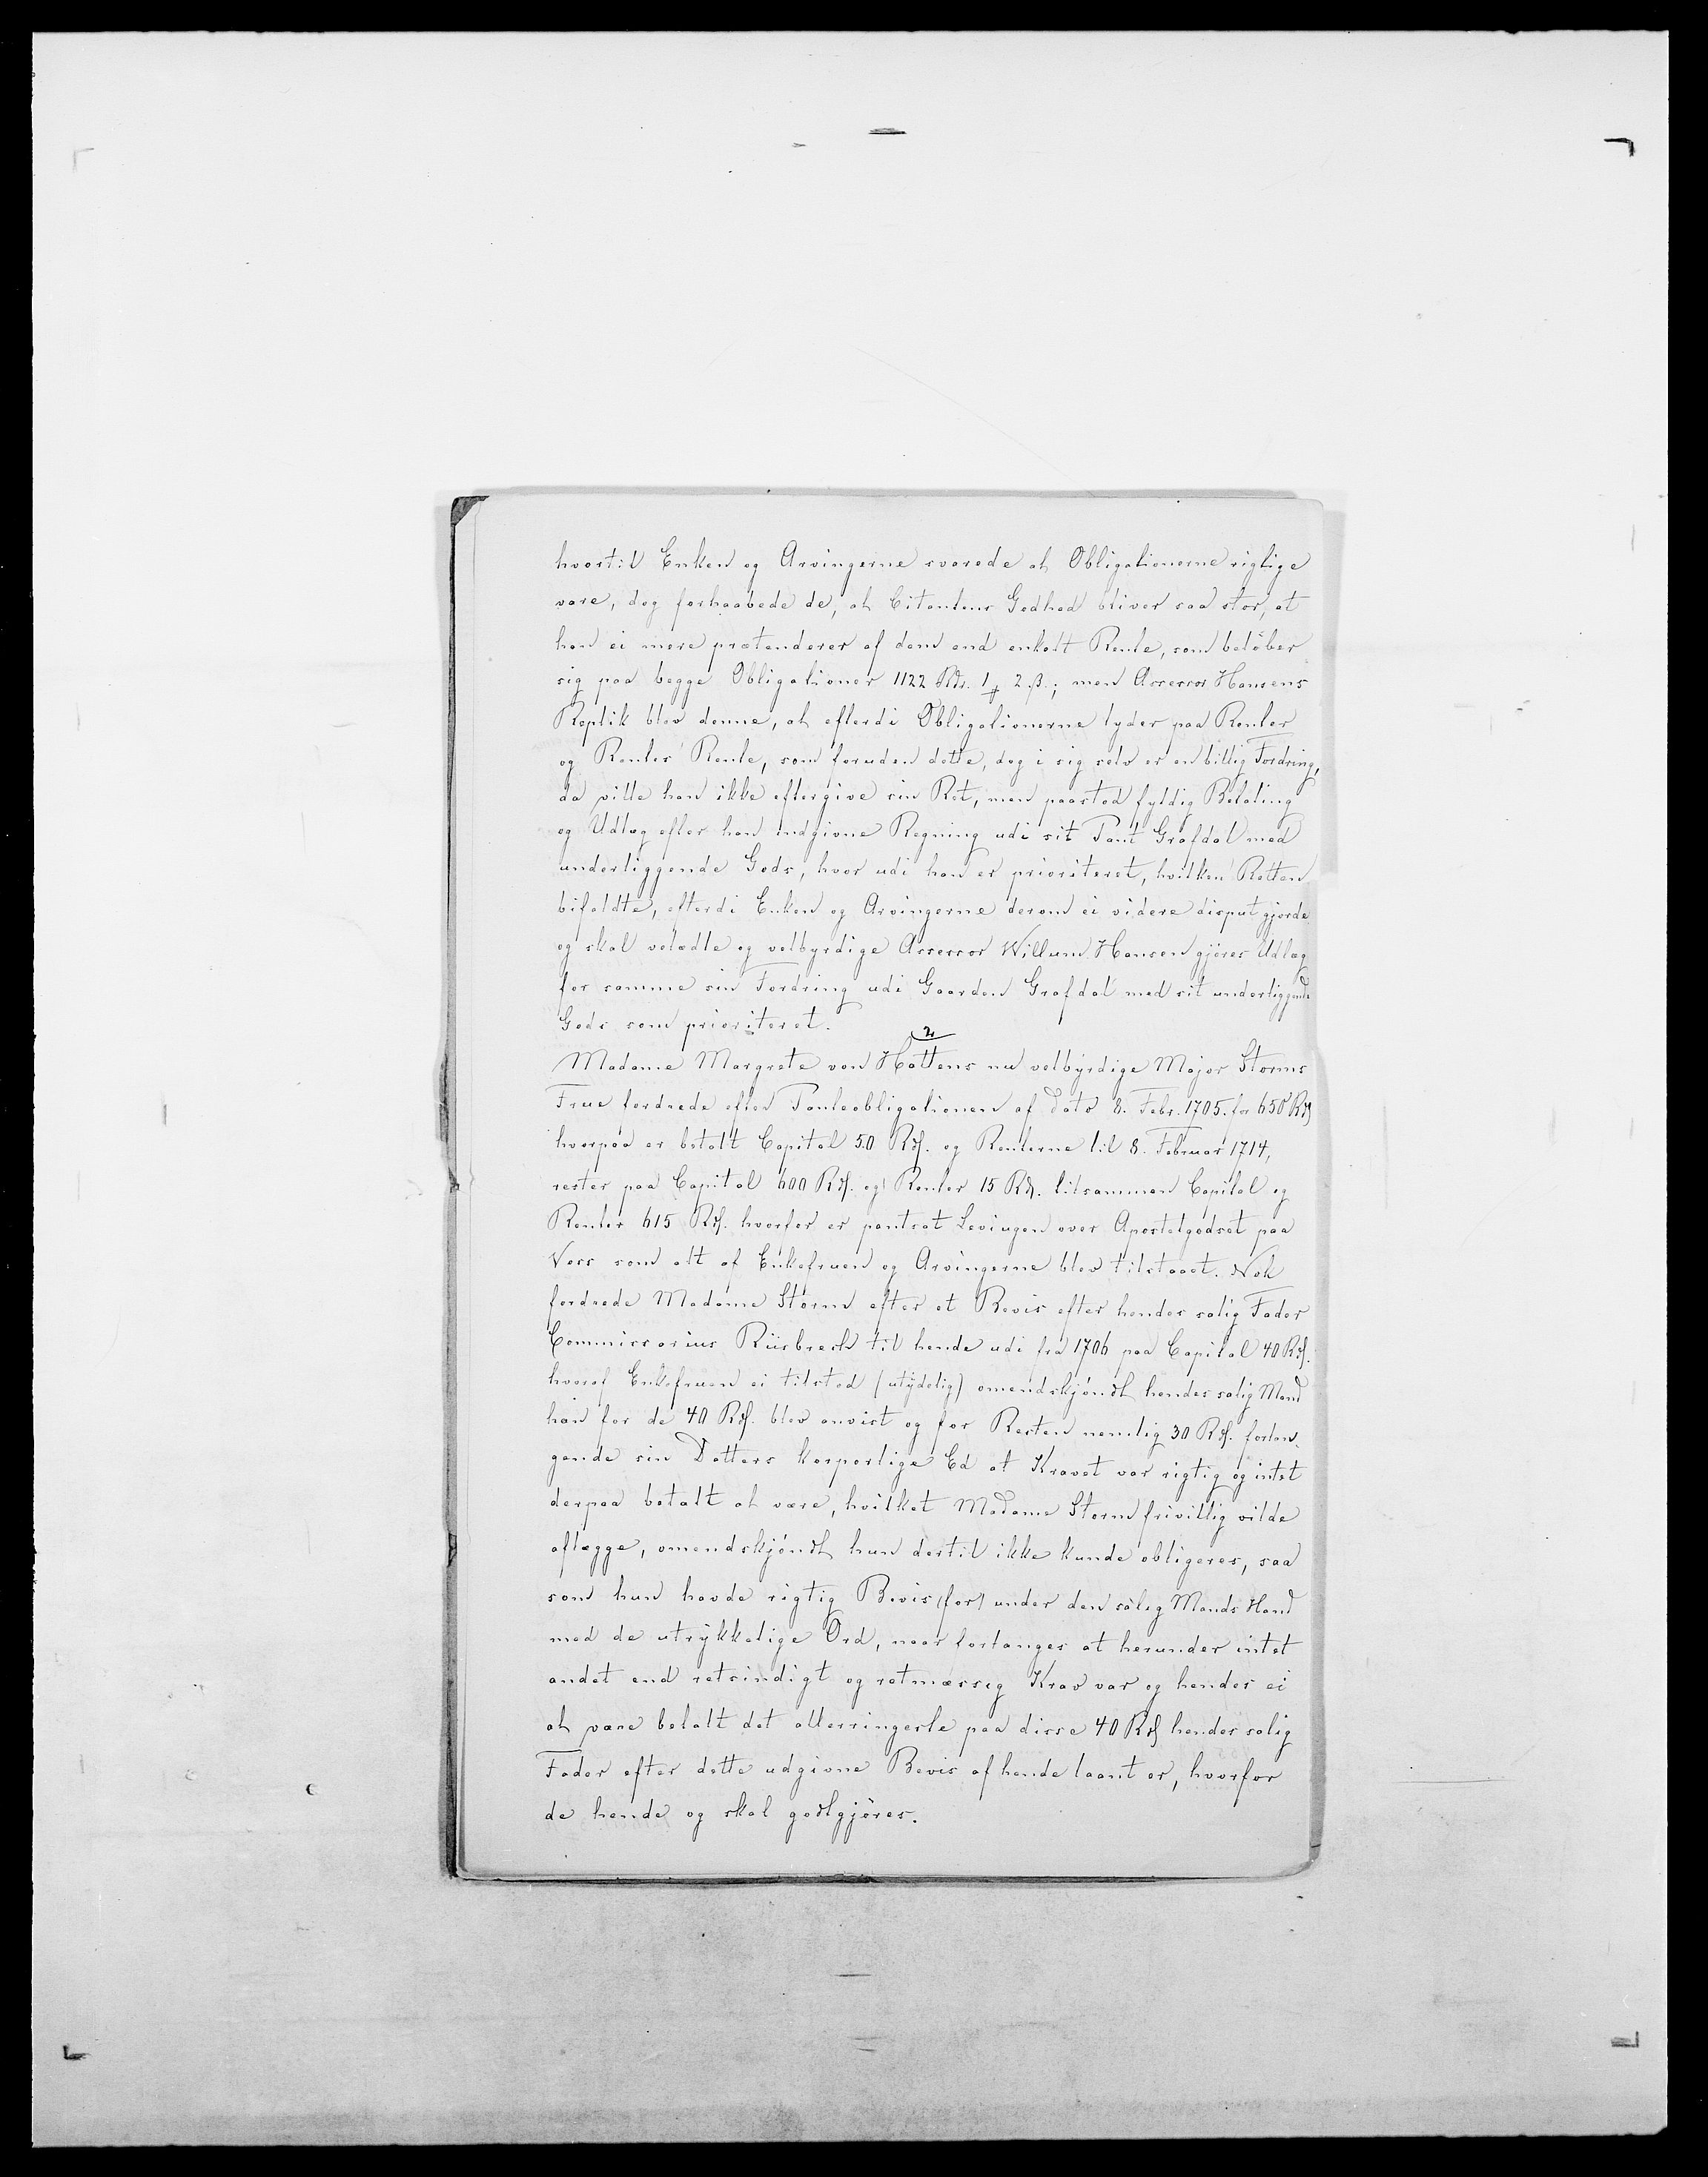 hvortil Enken og Arvingerne svarede at Obligationerne rigtige
vare, dog forhaabede de, at Citantens Godhed bliver saa stor, at
han ei mere prætenderer af dem end enkelt Rente, som beløber
sig paa begge Obligationer 1122 Rdr. 1 ℔ 2 ß.; men Assessor Hansens
Replik blev denne, at efterdi Obligationerne lyder paa Renter
og Renters Rente, som foruden dette, dog i sig selv er en billig Fordring,
da ville han ikke eftergive sin Ret, men paastod fyldig Betaling
og Udlæg efter han indgivne Regning udi sit Pant Grafdal med
underliggende Gods, hvor udi han er prioriteret, hvilken Retten
bifaldte, efterdi Enken og Arvingerne derom ei videre disput gjorde
og skal velædle og velbyrdige Assessor Willum Hansen gjøres Udlæg
for samme sin Fordring udi Gaarden Grafdal med sit underliggende
Gods som prioriteret.
2
Madame Margrete von Hattens nu velbyrdige Major Storms
Frue fordrede efter Panteobligationen af Dato 8. Febr. 1705. for 650 Rd
hvorpaa er betalt Capital 50 Rd. og Renterne til 8. Februar 1714,
rester paa Capital 600 Rd. og Renter 15 Rd. tilsammen Capital og
Renter 615 Rd. hvorfor er pantsat Levingen over Apostelgodset paa
Voss som alt af Enkefruen og Arvingerne blev tilstaaet. Nok
fordrede Madame Storm efter et Bevis efter hendes salig Fader
Commissarius Riisbrech til hende udi fra 1706 paa Capital 40 Rd.
hvoraf Enkefruen ei tilstod (utydelig) omendskjøndt hendes salig Mand
han for de 40 Rd. blev anvist og for Resten nemlig 30 Rd. forlan-
gende sin Datters korporlige Ed at Kravet var rigtig og intet
derpaa betalt at være, hvilket Madame Storm frivillig vilde
aflægge, omendskjøndt hun dertil ikke kunde obligeres, saa
som hun havde rigtig Bevis (for) under den salig Mands Haand
med de utrykkelige Ord, naar forlanges at herunder intet
andet end retsindigt og retmæssig Krav var og hendes ei
at være betalt det allerringeste paa disse 40 Rd hendes salig
Fader efter dette udgivne Bevis af hende laant er, hvorfor
de hende og skal godtgjøres.